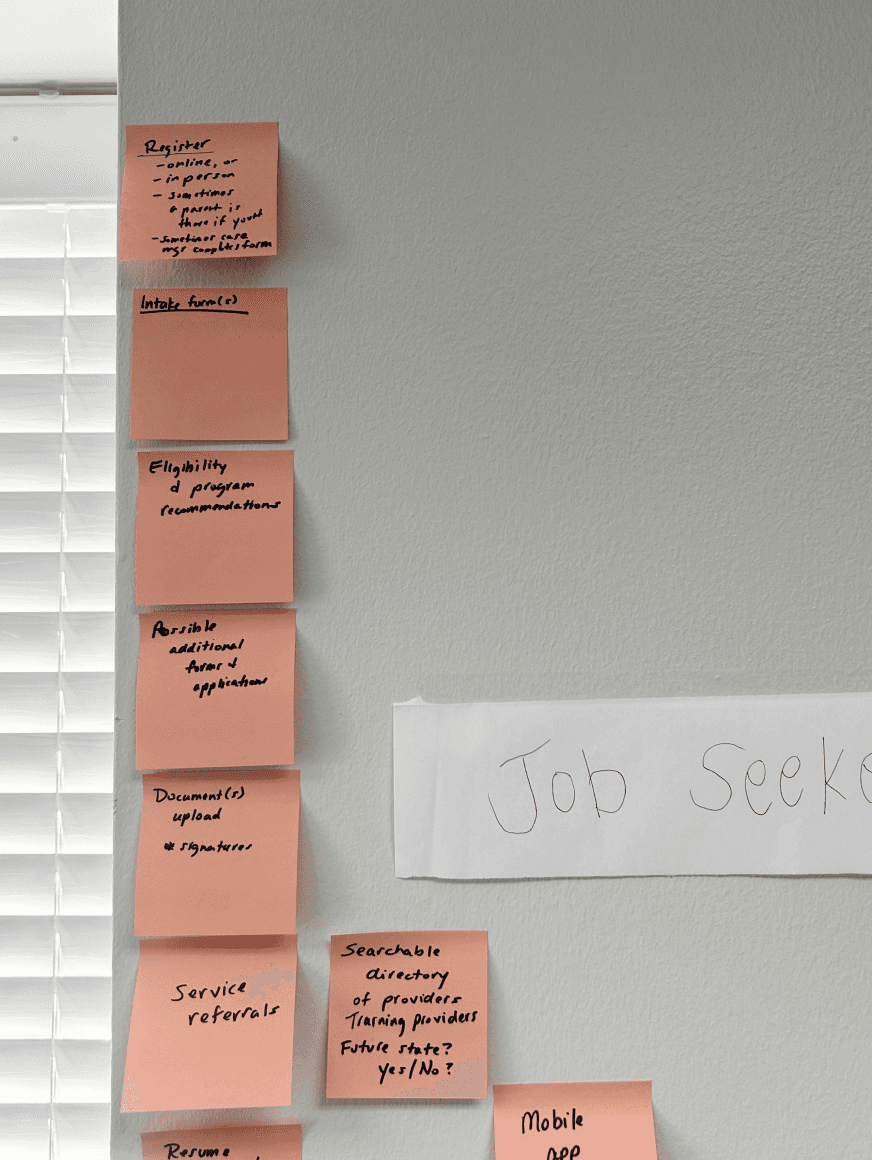 Register
- online, or
- in person
- sometimes
a parent is
there if youth
- sometimes case
mgr completes form
Intake form(s)
Eligibility
& program
recommendations
Possible
additional
forms &
applications
Document(s)
upload
* signatures
Service
referrals
Searchable
directory
of providers
Training providers
Future state?
yes/No?
Job Seeke
Mobile
app
Resume